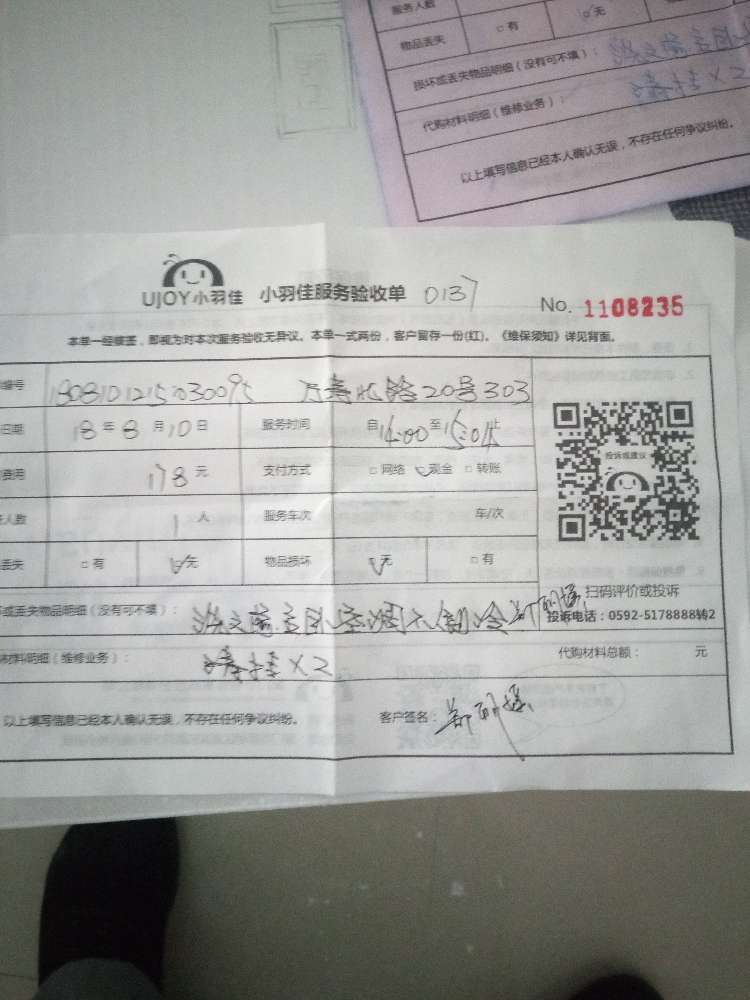 服务人数
物品丢失 □有 无
损坏或丢失物品明细（没有可不填）：
代购材料明细（维修业务）： 清挂×2
以上填写信息已经本人确认无误，不存在任何争议纠纷。
UJOY小羽佳 小羽佳服务验收单 0137 No. 1108235
本单一经签盖，即视为对本次服务验收无异议。本单一式两份，客户留存一份(红)。《维保须知》详见背面。
编号 万寿北路20号303
日期 18年8月10日 服务时间 自14:00至15:04止
费用 178元 支付方式 □网络 现金 □转账
人数 1人 服务车次 车/次
丢失 □有 无 物品损坏 无 □有
投诉或建议
扫码评价或投诉
投诉电话：0592-5178888转2
坏或丢失物品明细（没有可不填）：
材料明细（维修业务）： 清挂×2 代购材料总额： 元
以上填写信息已经本人确认无误，不存在任何争议纠纷。 客户签名：